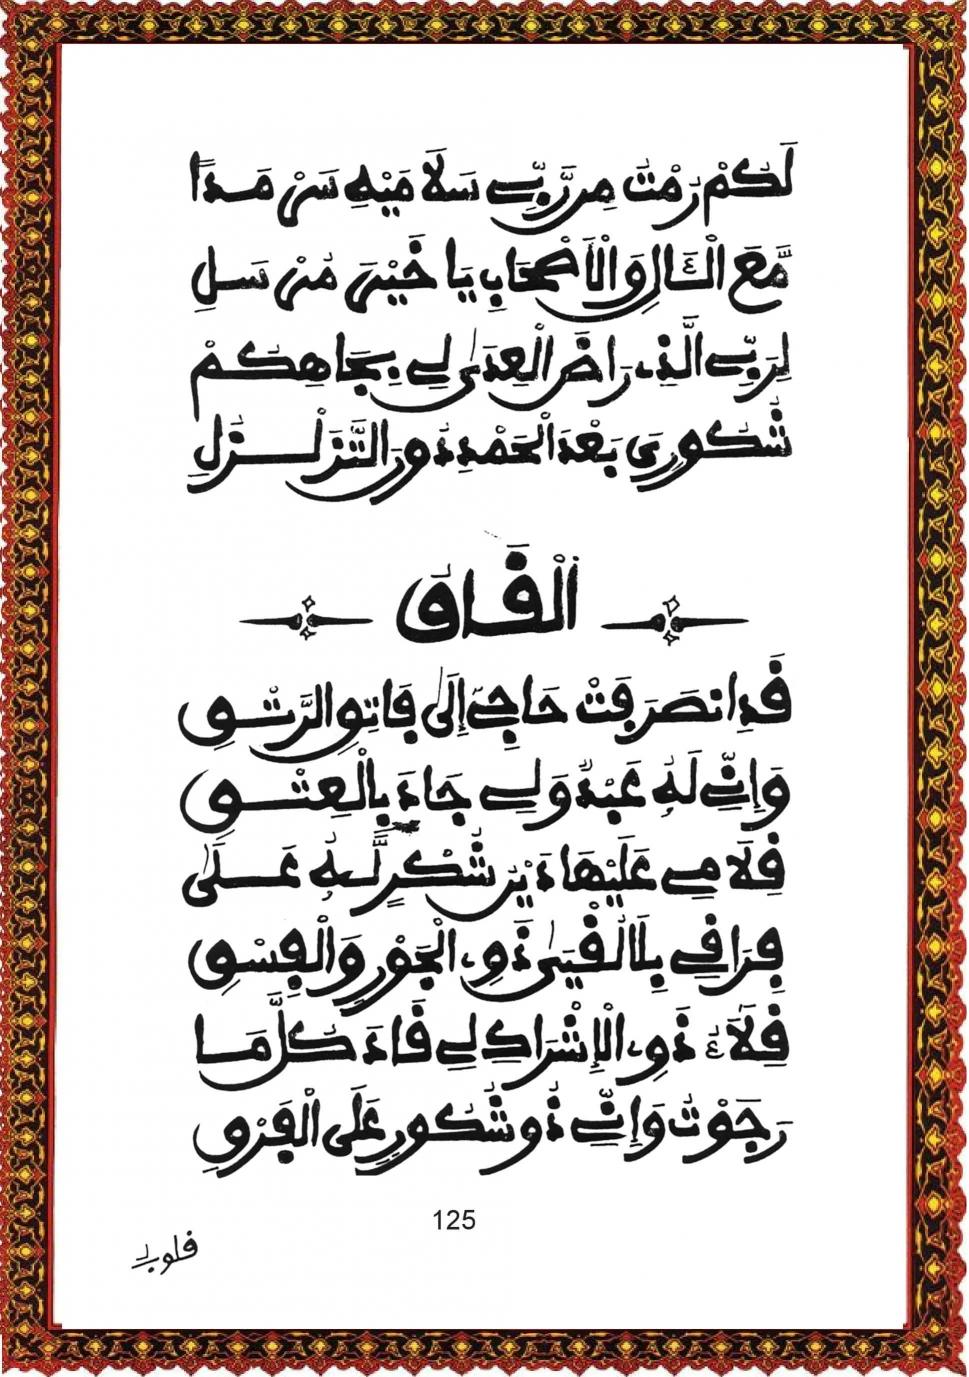 لَكُمْ رُمْتُ مِن رَّبِّي سَلَامَيْهِ سَرْمَدًا
مَّعَ الْآلِ وَالْأَصْحَابِ يَا خَيْرَ مُرْسَلِ
لِرَبِّي الَّذِي رَاضَ الْعِدَىٰ لِي بِجَاهِكُمْ
شُكُورِي بَعْدَ الْحَمْدِ دُونَ التَّزَلْزُلِ
الْقَافُ
قَدِ انصَرَفَتْ حَاجِي إِلَىٰ فَاتِقِ الرَّتْقِ
وَإِنِّي لَهُ عَبْدٌ وَلِي جَادَ بِالْعِتْقِ
قِلَامِي عَلَيْهَا دَيْنُ شُكْرٍ لَّهُ عَلَىٰ
فِرَاقِي بِلَا لُقْيَىٰ ذَوِي الْجَوْرِ وَالْفِسْقِ
قِلَاءُ ذَوِي الْإِشْرَاكِ لِي قَادَ كُلَّ مَا
رَجَوْتُ وَإِنِّي ذُو شُكُورٍ عَلَى الْفَرْقِ
125
قلوب